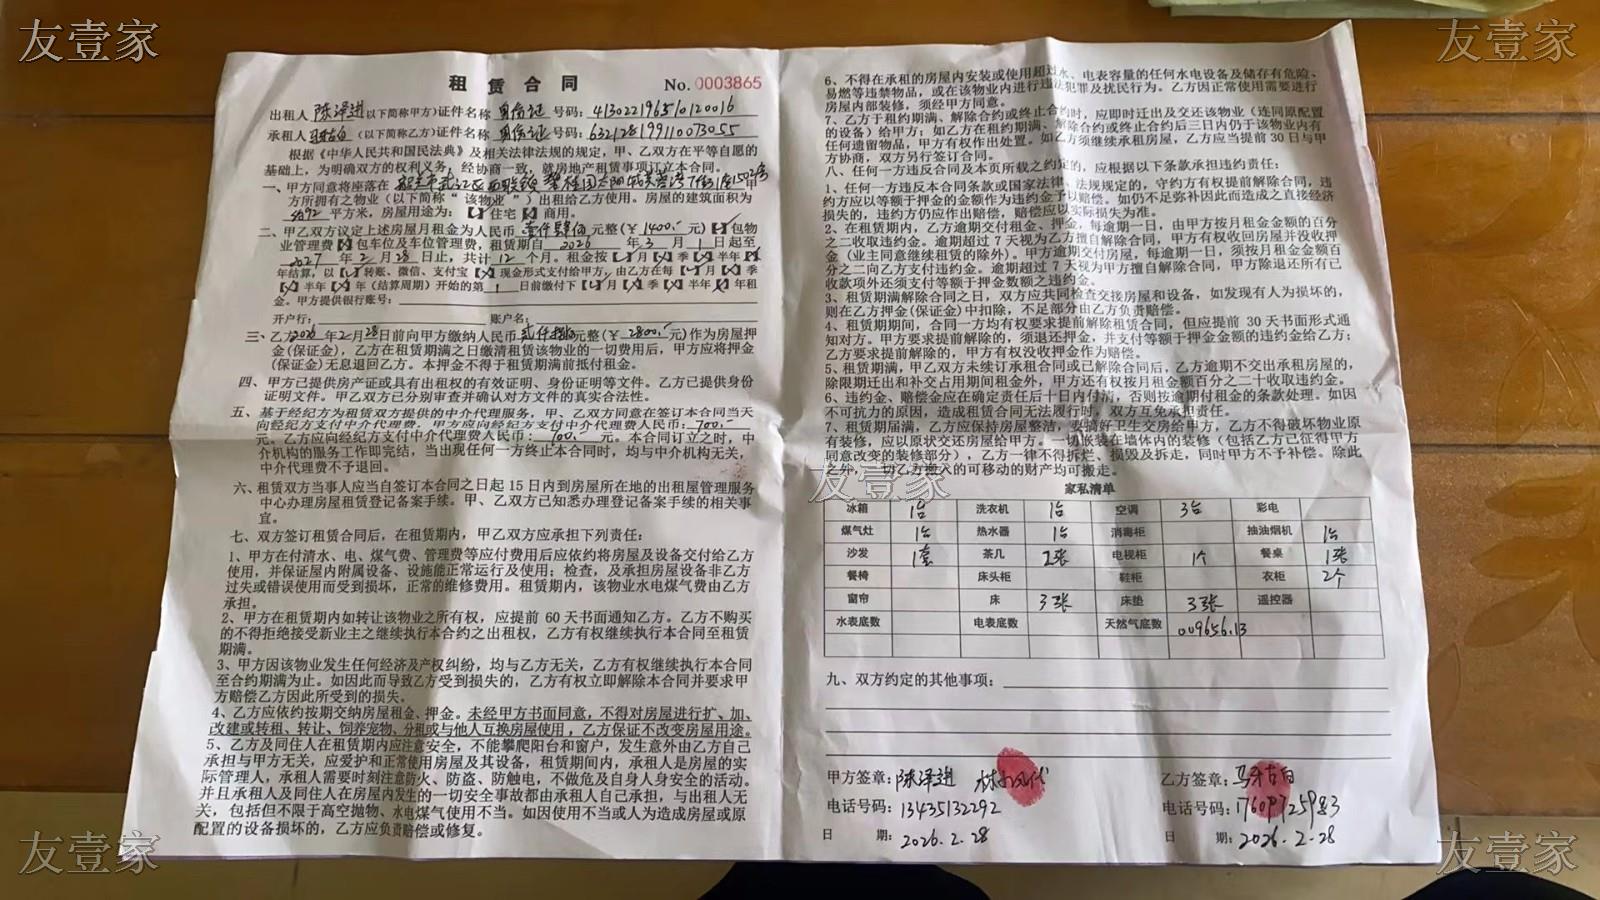 友壹家
友壹家
租赁合同 No.0003865
出租人 陈泽进 (以下简称甲方)证件名称 身份证 号码: 413022196510120016
承租人 (以下简称乙方)证件名称 身份证 号码: 632128199110073055
根据《中华人民共和国民法典》及相关法律法规的规定，甲、乙双方在平等自愿的
基础上，为明确双方的权利义务，经协商一致，就房地产租赁事项订立本合同。
一、甲方同意将座落在 甲
方所拥有之物业（以下简称“该物业”）出租给乙方使用。房屋的建筑面积为
平方米，房屋用途为：【 】住宅【 】商用。
二、甲乙双方议定上述房屋月租金为人民币 壹仟肆佰 元整(￥1400.-元)【 】包物
业管理费【 】包车位及车位管理费，租赁期自 2026 年 3 月 1 日起至
2027 年 2 月 28 日止，共计 12 个月。租金按【 】月【 】季【 】半年【 】
年结算，以【 】转账、微信、支付宝【 】现金形式支付给甲方，由乙方在每【 】月【 】季
【 】半年【 】年（结算周期）开始的第 1 日前缴付下【 】月【 】季【 】半年【 】年租
金。甲方提供银行账号：
开户行： 账户名：
三、乙方 2026 年 2 月 28 日前向甲方缴纳人民币 元整(￥2800.-元)作为房屋押
金(保证金)，乙方在租赁期满之日缴清租赁该物业的一切费用后，甲方应将押金
(保证金)无息退回乙方。本押金不得于租赁期满前抵付租金。
四、甲方已提供房产证或具有出租权的有效证明、身份证明等文件。乙方已提供身份
证明文件。甲乙双方已分别审查并确认对方文件的真实合法性。
五、基于经纪方为租赁双方提供的中介代理服务，甲、乙双方同意在签订本合同当天
向经纪方支付中介代理费，甲方应向经纪方支付中介代理费人民币：700.-
元。乙方应向经纪方支付中介代理费人民币：700.- 元。本合同订立之时，中
介机构的服务工作即完结，当出现任何一方终止本合同时，均与中介机构无关，
中介代理费不予退回。
六、租赁双方当事人应当自签订本合同之日起 15 日内到房屋所在地的出租屋管理服务
中心办理房屋租赁登记备案手续。甲、乙双方已知悉办理登记备案手续的相关事
宜。
七、双方签订租赁合同后，在租赁期内，甲乙双方应承担下列责任：
1、甲方在付清水、电、煤气费、管理费等应付费用后应依约将房屋及设备交付给乙方
使用，并保证屋内附属设备、设施能正常运行及使用；检查，及承担房屋设备非乙方
过失或错误使用而受到损坏，正常的维修费用。租赁期内，该物业水电煤气费由乙方
承担。
2、甲方在租赁期内如转让该物业之所有权，应提前 60 天书面通知乙方。乙方不购买
的不得拒绝接受新业主之继续执行本合约之出租权，乙方有权继续执行本合同至租赁
期满。
3、甲方因该物业发生任何经济及产权纠纷，均与乙方无关，乙方有权继续执行本合同
至合约期满为止。如因此而导致乙方受到损失的，乙方有权立即解除本合同并要求甲
方赔偿乙方因此所受到的损失。
4、乙方应依约按期交纳房屋租金、押金。未经甲方书面同意，不得对房屋进行扩、加、
改建或转租、转让、饲养宠物、分租或与他人互换房屋使用，乙方保证不改变房屋用途。
5、乙方及同住人在租赁期内应注意安全，不能攀爬阳台和窗户，发生意外由乙方自己
承担与甲方无关，应爱护和正常使用房屋及其设备，租赁期间内，承租人是房屋的实
际管理人，承租人需要时刻注意防火、防盗、防触电，不做危及自身人身安全的活动。
并且承租人及同住人在房屋内发生的一切安全事故都由承租人自己承担，与出租人无
关，包括但不限于高空抛物、水电煤气使用不当。如因使用不当或人为造成房屋或原
配置的设备损坏的，乙方应负责赔偿或修复。
6、不得在承租的房屋内安装或使用超过水、电表容量的任何水电设备及储存有危险、
易燃等违禁物品，或在该物业内进行违法犯罪及扰民行为。乙方因正常使用需要进行
房屋内部装修，须经甲方同意。
7、乙方于租约期满、解除合约或终止合约时，应即时迁出及交还该物业（连同原配置
的设备）给甲方；如乙方在租约期满、解除合约或终止合约后三日内仍于该物业内有
任何遗留物品，甲方有权作出处置。如乙方须继续承租房屋，乙方应当提前 30 日与甲
方协商，双方另行签订合同。
八、任何一方违反本合同及本页所载之约定的，应根据以下条款承担违约责任：
1、任何一方违反本合同条款或国家法律、法规规定的，守约方有权提前解除合同，违
约方应以等额于押金的金额作为违约金予以赔偿。如仍不足弥补因此而造成之直接经济
损失的，违约方仍应作出赔偿，赔偿应以实际损失为准。
2、在租赁期内，乙方逾期交付租金、押金，每逾期一日，由甲方按月租金金额的百分
之二收取违约金。逾期超过 7 天视为乙方擅自解除合同，甲方有权收回房屋并没收押
金（业主同意继续租赁的除外）。甲方逾期交付房屋，每逾期一日，须按月租金金额百
分之二向乙方支付违约金。逾期超过 7 天视为甲方擅自解除合同，甲方除退还所有已
收款项外还须支付等额于押金数额之违约金。
3、租赁期满解除合同之日，双方应共同检查交接房屋和设备，如发现有人为损坏的，
则在乙方押金(保证金)中扣除，不足部分由乙方负责赔偿。
4、租赁期期间，合同一方均有权要求提前解除租赁合同，但应提前 30 天书面形式通
知对方。甲方要求提前解除的，须退还押金，并支付等额于押金金额的违约金给乙方；
乙方要求提前解除的，甲方有权没收押金作为赔偿。
5、租赁期满，甲乙双方未续订承租合同或已解除合同后，乙方逾期不交出承租房屋的，
除限期迁出和补交占用期间租金外，甲方还有权按月租金额百分之二十收取违约金。
6、违约金、赔偿金应在确定责任后十日内付清，否则按逾期付租金的条款处理。如因
不可抗力的原因，造成租赁合同无法履行时，双方互免承担责任。
7、租赁期届满，乙方应保持房屋整洁，要搞好卫生交房给甲方，乙方不得破坏物业原
有装修，应以原状交还房屋给甲方。一切嵌装在墙体内的装修（包括乙方已征得甲方
同意改变的装修部分），乙方一律不得拆烂、损毁及拆走，同时甲方不予补偿。除此
之外，一切乙方搬入的可移动的财产均可搬走。
友壹家
家私清单
冰箱 1台 洗衣机 1台 空调 3台 彩电
煤气灶 1台 热水器 1台 消毒柜 抽油烟机 1台
沙发 1套 茶几 2张 电视柜 1个 餐桌 1张
餐椅 床头柜 鞋柜 衣柜 2个
窗帘 床 3张 床垫 3张 遥控器
水表底数 电表底数 天然气底数 009656.13
九、双方约定的其他事项：
甲方签章：陈泽进
电话号码：13435132292
日 期：2026.2.28
乙方签章：马牙古白
电话号码：17609725983
日 期：2026.2-28
友壹家
友壹家